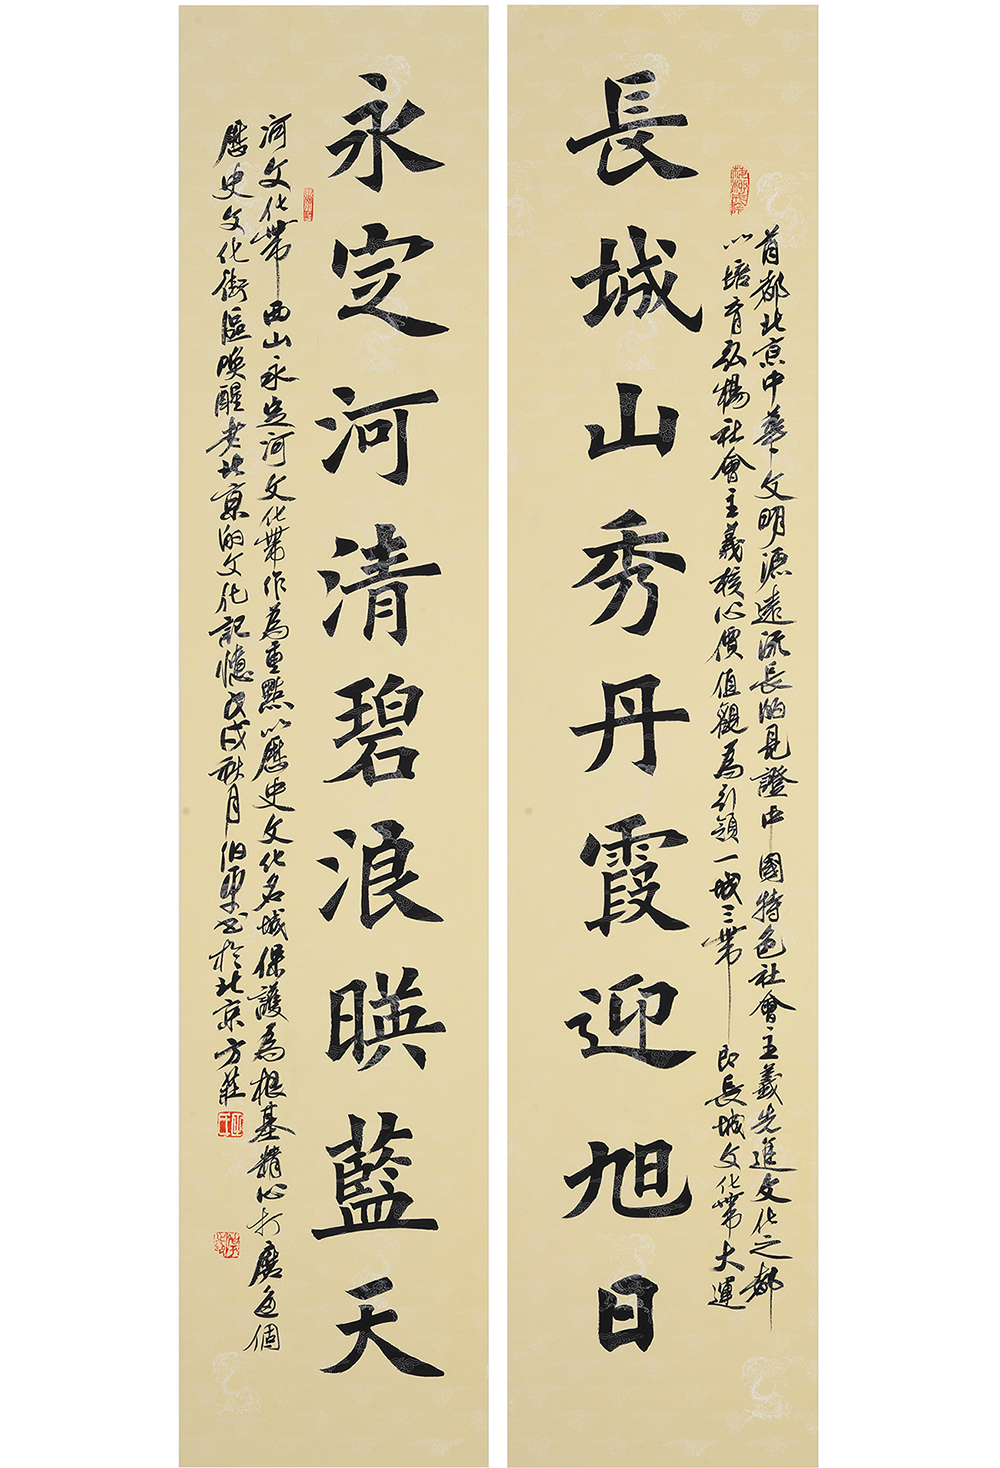 首都北京中華文明源遠流長的見證中國特色社會主義先進文化之都
以培育弘楊社會主義核心價值觀為引領一城三帶即長城文化帶大運
長城山秀丹霞迎旭日
永定河清碧浪暎藍天
河文化帶西山永定河文化帶作為重點以歷史文化名城保護為根基精心打磨這個
歷史文化街區喚醒老北京的文化記憶戊戌秋月伯平書於北京方莊